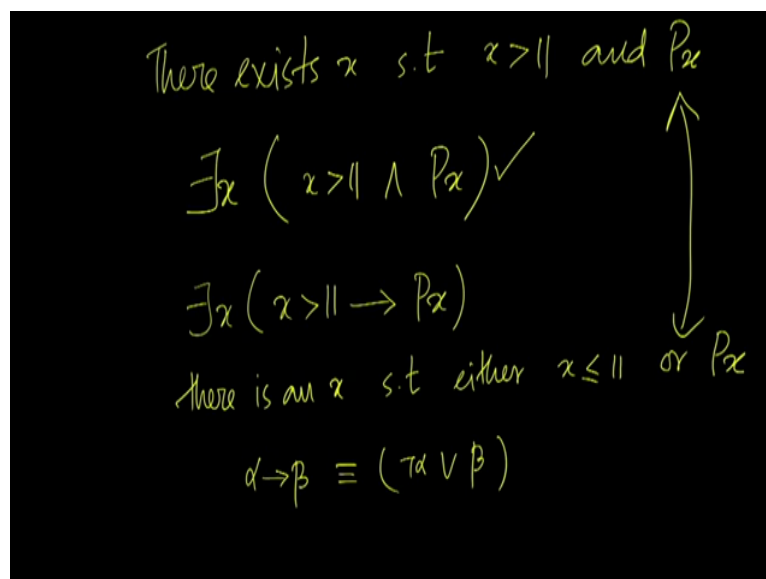 There exists x s.t x>11 and Px
∃x (x>11 ∧ Px) ✓
∃x (x>11 → Px)
there is an x s.t either x≤11 or Px
α→β ≡ (¬α ∨ β)